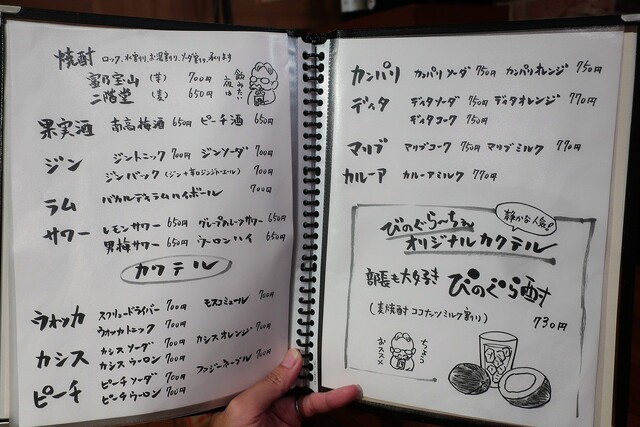 焼酎 ロック、水割り、お湯割り、ソーダ割り、承ります
富乃宝山 (芋) 700円
二階堂 (麦) 650円
飲みたい夜は
果実酒 南高梅酒 650円 ピーチ酒 650円
ジン ジントニック 700円 ジンソーダ 700円
ジンバック (ジン+辛口ジンジャーエール) 700円
ラム バカルディラムハイボール 700円
サワー レモンサワー 650円 グレープフルーツサワー 650円
男梅サワー 650円 ウーロンハイ 650円
カクテル
ウォッカ スクリュードライバー 700円 モスコミュール 700円
ウォッカトニック 700円
カシス カシスソーダ 700円 カシスオレンジ 700円
カシスウーロン 700円
ピーチ ピーチソーダ 700円 ファジーネーブル 700円
ピーチウーロン 700円
カンパリ カンパリソーダ 750円 カンパリオレンジ 750円
ディタ ディタソーダ 750円 ディタオレンジ 770円
ディタコーク 750円
マリブ マリブコーク 750円 マリブミルク 770円
カルーア カルーアミルク 770円
静かな人気!
ぴのぐら〜ちぇ
オリジナルカクテル
部長も大好き ぴのぐら酎
(麦焼酎 ココナッツミルク割り) 730円
ちょう
おススメ